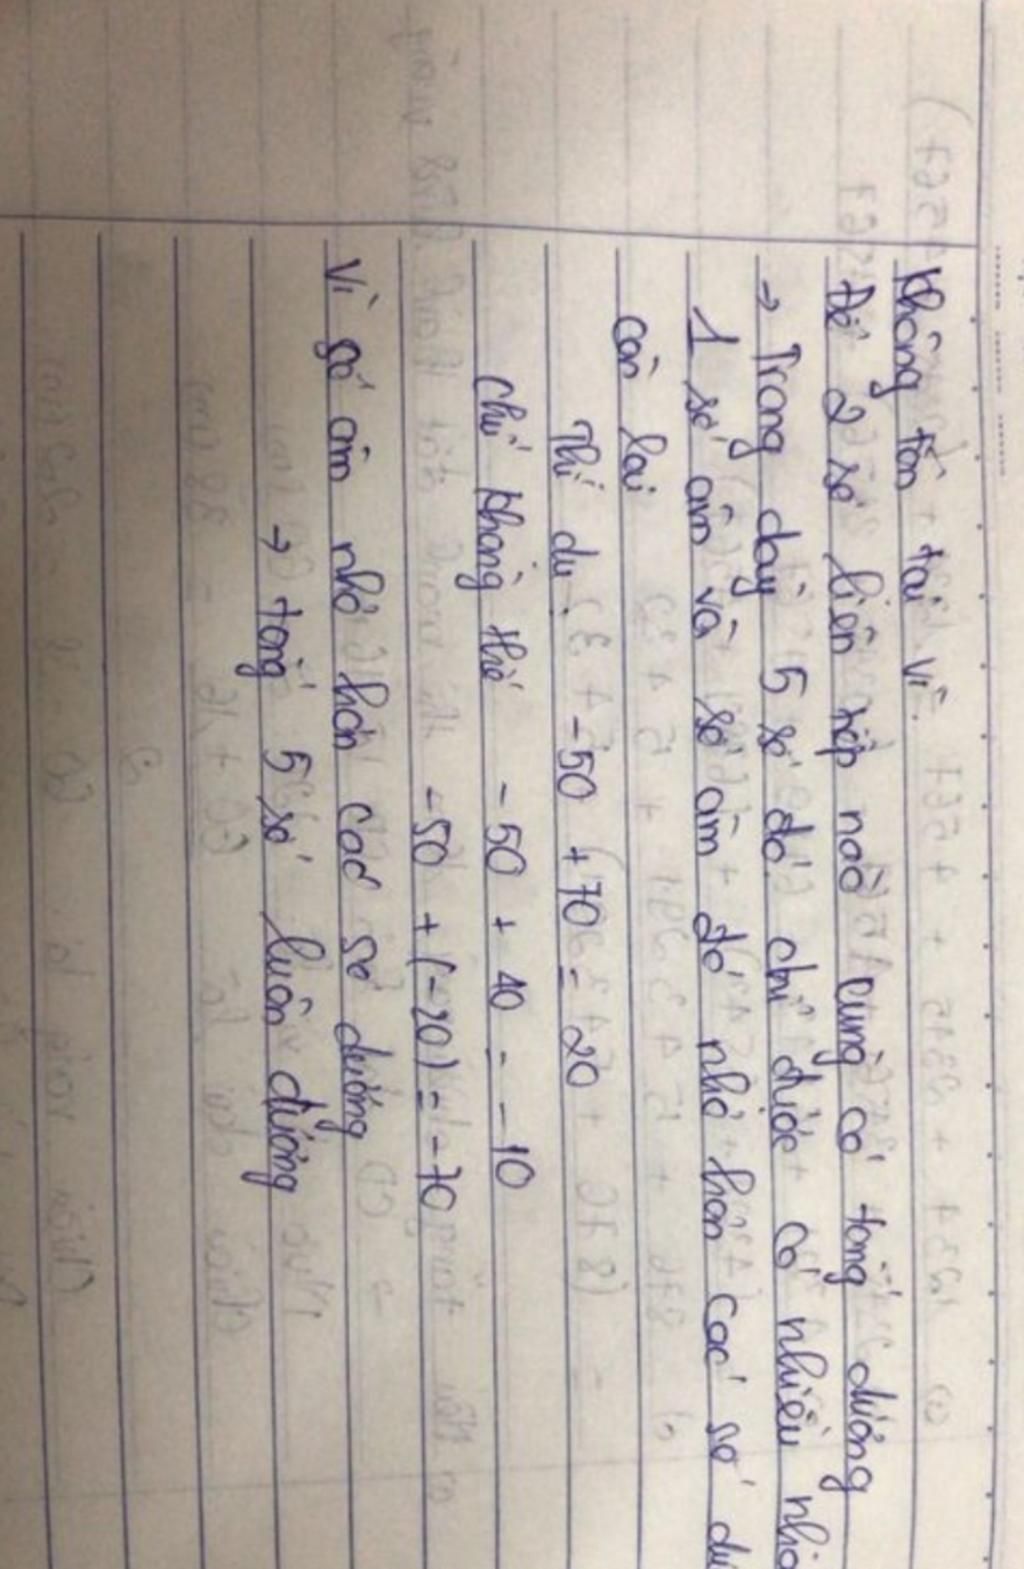 Không tồn tại vì.
Để 2 số liên tiếp nào cũng có tổng dương
→ Trong dãy 5 số đó chỉ được có nhiều nhấ
1 số âm và số âm đó nhỏ hơn các số dư
còn lại
Thí dụ: -50 + 70 = 20
chứ không thể -50 + 40 = -10
-50 + (-20) = -70
Vì số âm nhỏ hơn các số dương
→ tổng 5 số luôn dương